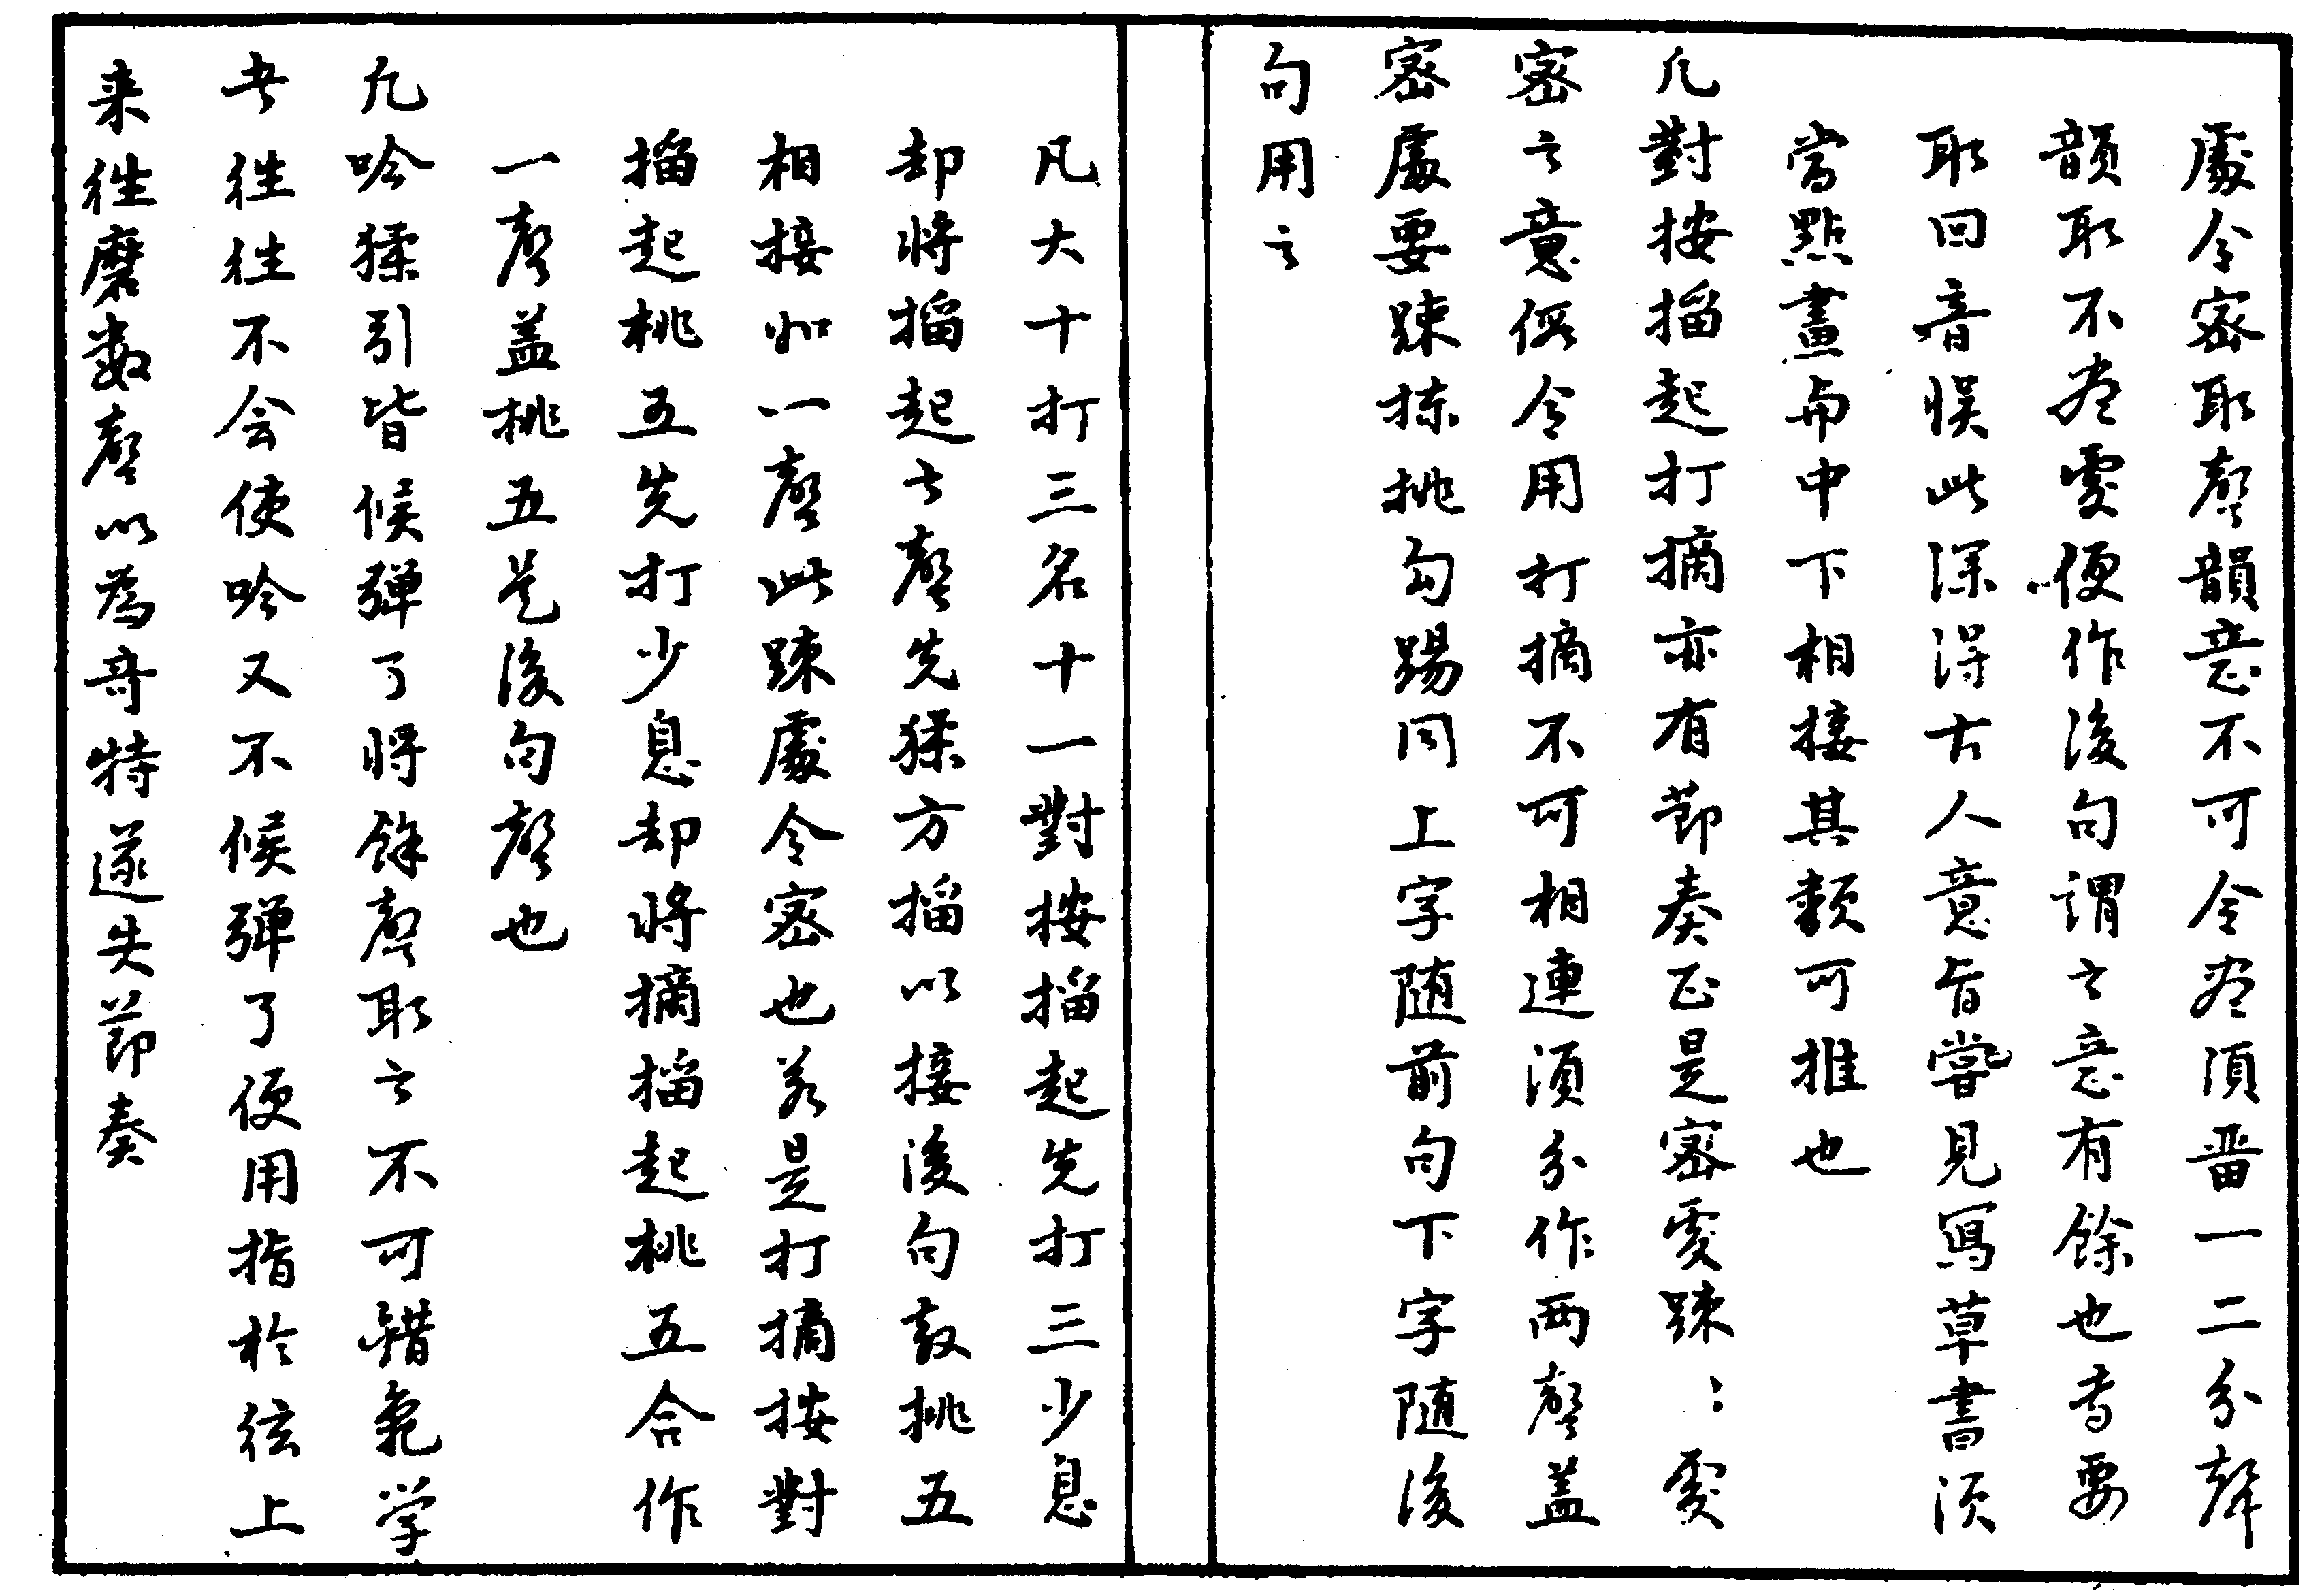 處令密取聲韻意不可令尽須畱一二分聲
韻取不尽處便作後句謂之意有餘也專要
取回音悞此深得古人意旨嘗見寫草書須
當點畫向中下相接其類可推也
凡對按搯起打摘亦有節奏正是密處踈〻處
密之意假令用打摘不可相連須分作兩聲盖
密處要踈抹挑勾踢同上字随前句下字随後
句用之
凡大十打三名十一對按搯起先打三少息
却将搯起之聲先猱方搯以接後句教挑五
相接如一聲此踈處令密也若是打摘按對
搯起挑五先打少息却将摘搯起挑五合作
一聲盖挑五是後句聲也
凡吟猱引皆候弹了将餘聲取之不可錯亂学
者徃徃不会使吟又不候弹了便用指於弦上
来徃磨数聲以為奇特遂失節奏